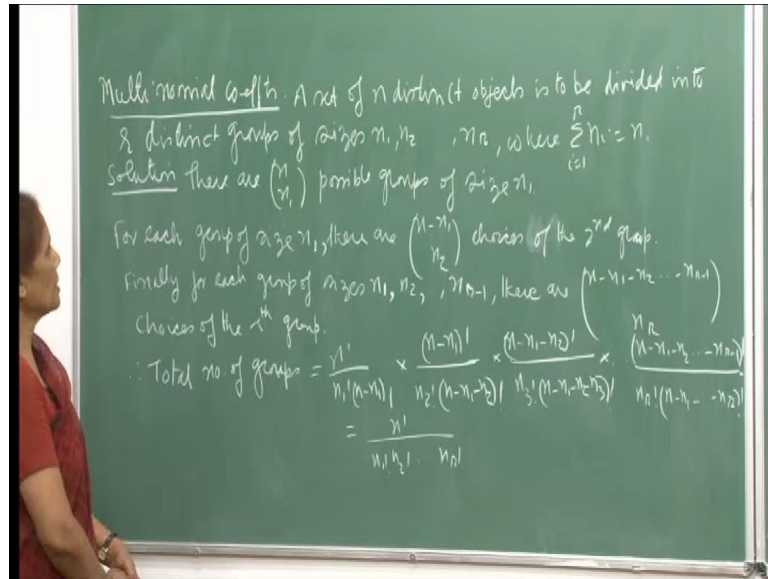 Multinomial coeffts. A set of n distinct objects is to be divided into
r distinct groups of sizes n₁, n₂ , nᵣ, where \sum_{i=1}^{r} nᵢ = n.
Solution There are \binom{n}{n₁} possible groups of size n₁.
For each group of size n₁, there are \binom{n-n₁}{n₂} choices of the 2nd group.
Finally for each group of sizes n₁, n₂, , nᵣ₋₁, there are \binom{n-n₁-n₂...-nᵣ₋₁}{nᵣ}
choices of the rth group.
∴ Total no. of groups = \frac{n!}{n₁!(n-n₁)!} × \frac{(n-n₁)!}{n₂!(n-n₁-n₂)!} × \frac{(n-n₁-n₂)!}{n₃!(n-n₁-n₂-n₃)!} × \frac{(n-n₁-n₂...-nᵣ₋₁)!}{nᵣ!(n-n₁-...-nᵣ)!}
= \frac{n!}{n₁!n₂!.. nᵣ!}